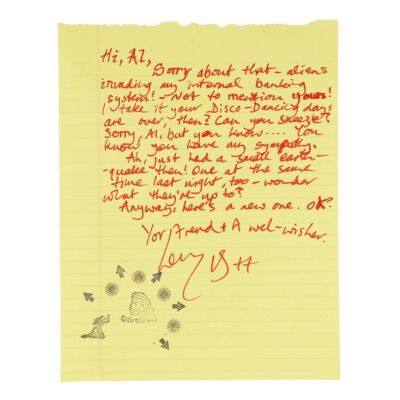 Hi, Al,
Sorry about that - aliens
invading my internal banking
system! - Not to mention yours!
I take it your Disco-Dancing days
are over, then? Can you sneeze?
Sorry, Al, but you know.... You
know you have my sympathy.
Ah, just had a small earth-
quake then! One at the same
time last night, too - wonder
what they're up to?
Anyway, here's a new one. OK?
Yor friend + A wel-wisher.